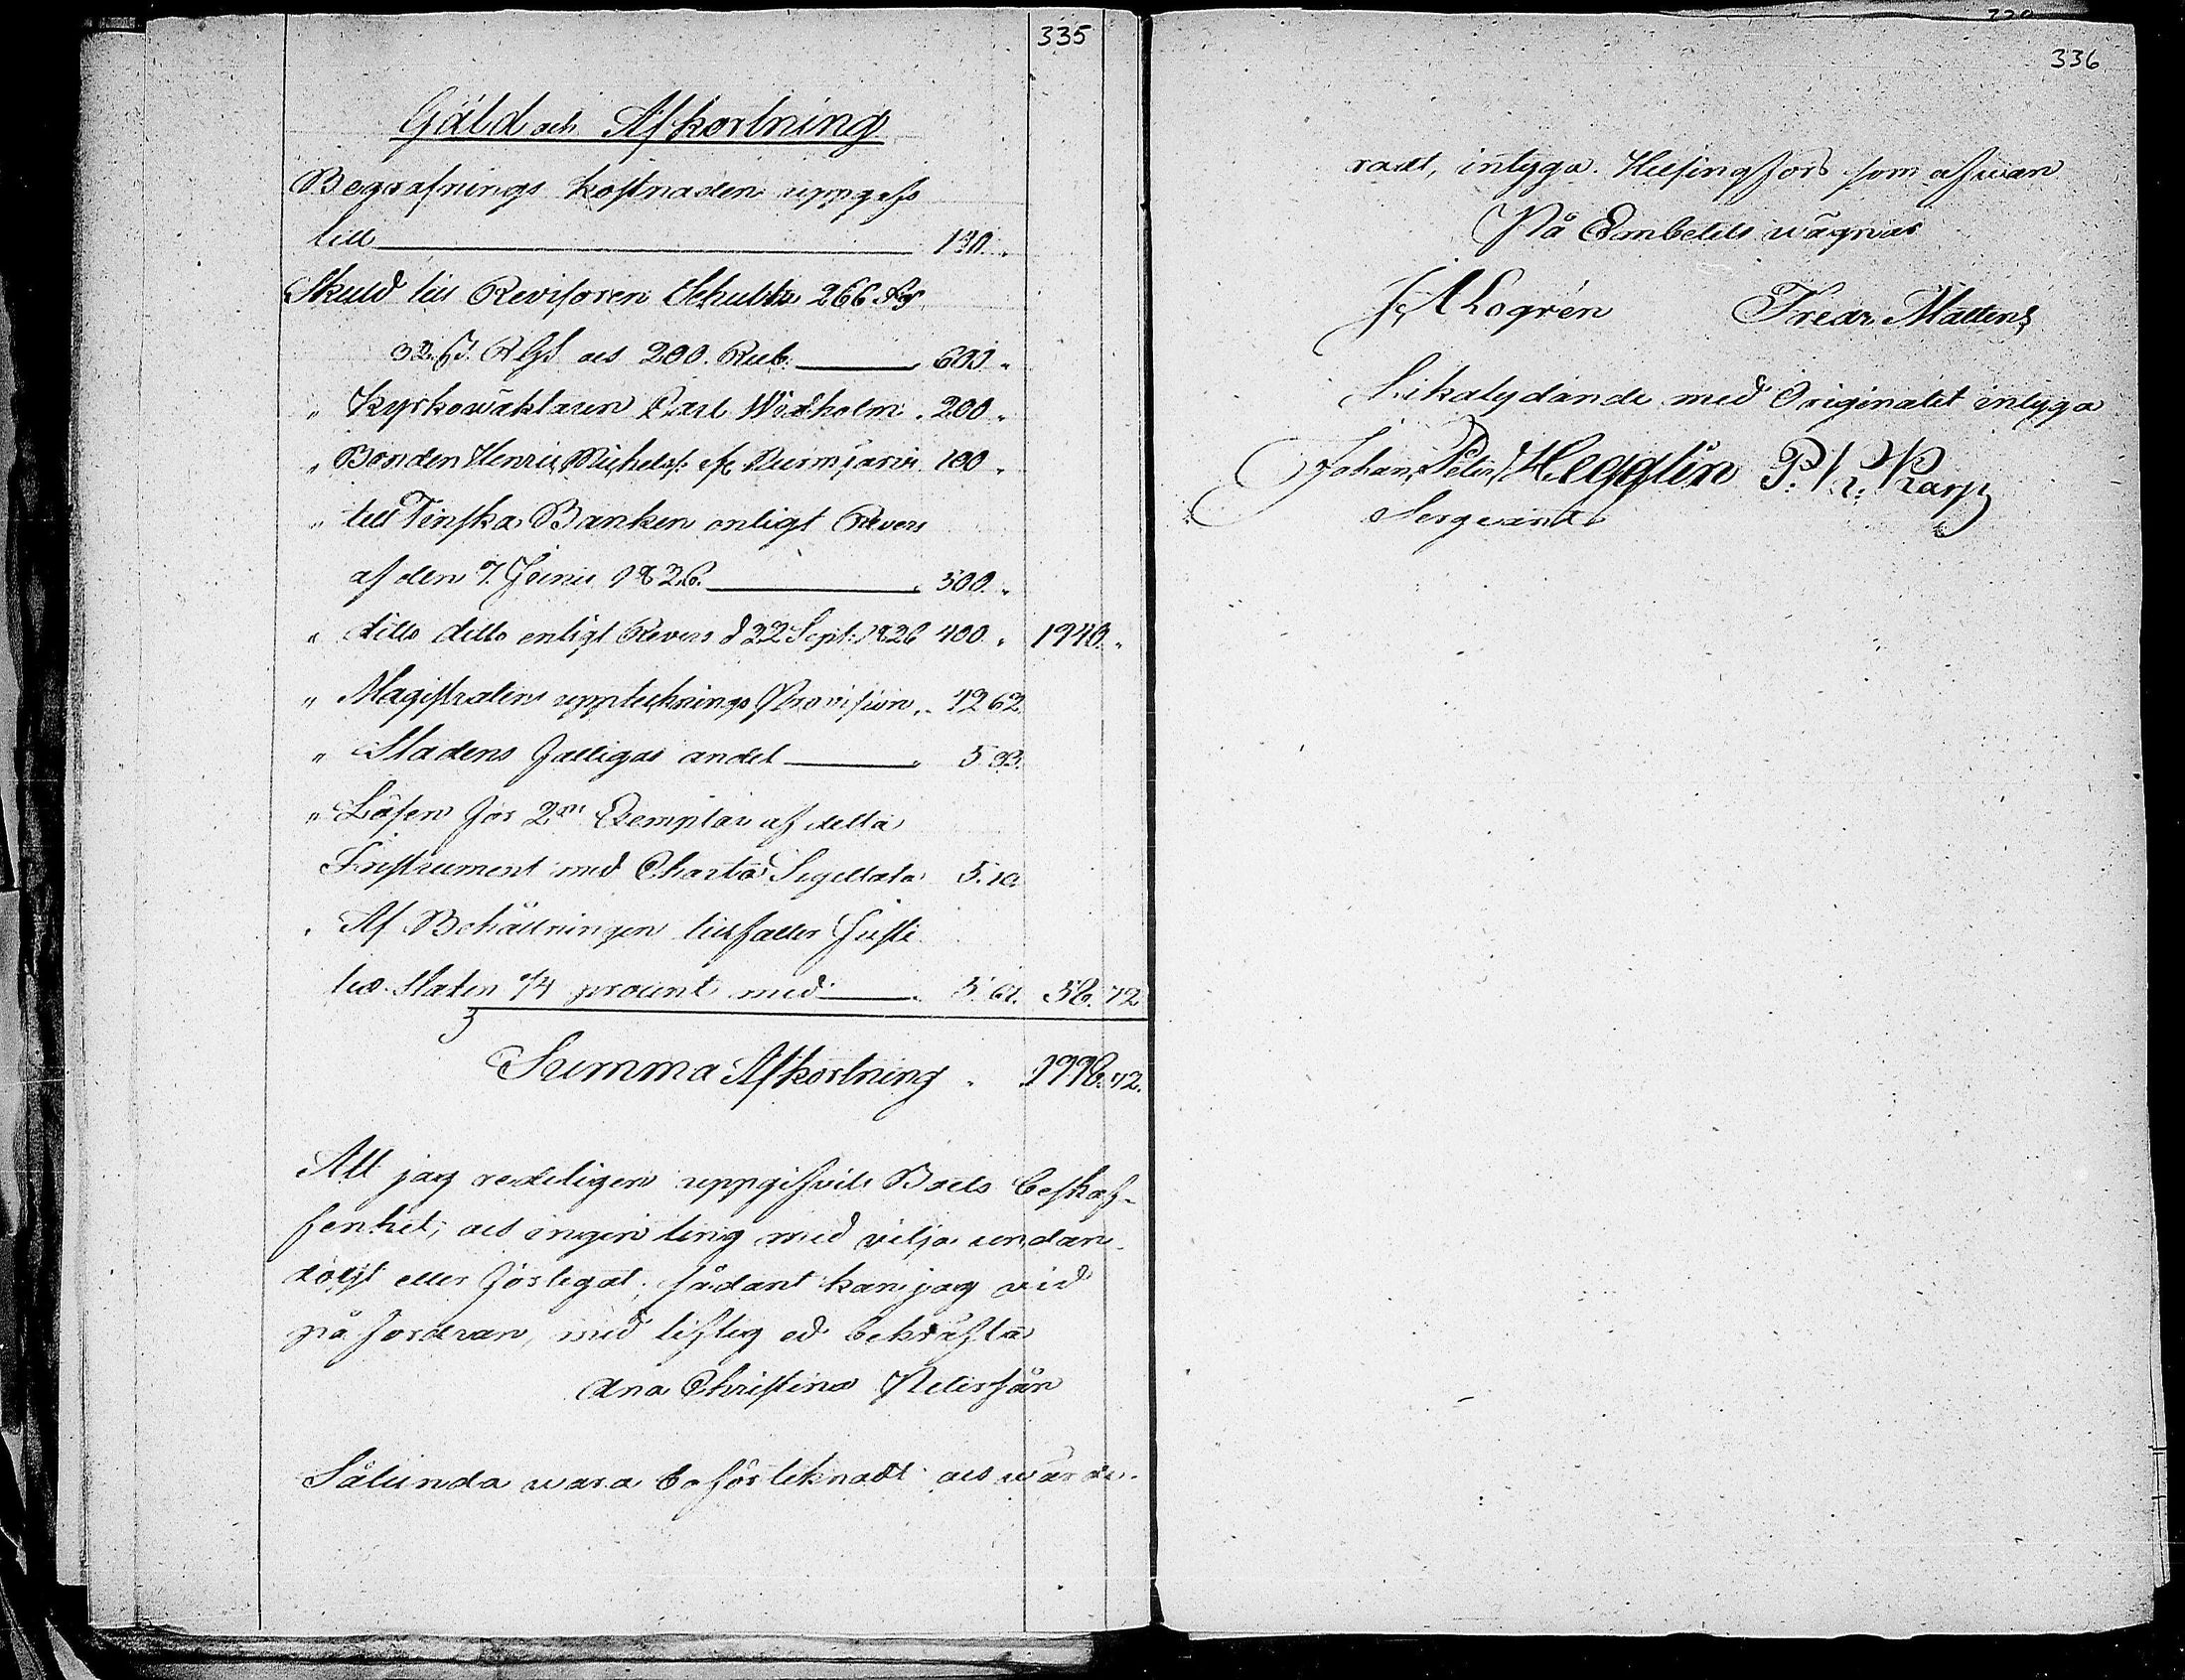 335
Gäld och Afkortning
Begrafnings kostnaden uppgifs
till 130. "
Skuld till Revisoren Schultz 266 Rd
32 s. RGs als 200. Rub. 600. "
" Kyrkowäktaren Carl Widholm . 200 "
" Bonden Henric Michels: af Nurmijärvi 100 "
" till Finska Banken enligt Revers
af den 7. Junii 1826. 500. "
" ditto ditto enligt Revers d 22 Sept: 1826 400. " 1940. "
" Magistratens upptecknings Provision . 42 62.
" Stadens fattigas andel 5 33.
" Lösen för 2ne Exemplar af detta
Instrument med Charta Sigillata 5. 10
. Af Behållningen tillfaller Justi
tiæ Staten 1/4 procent med 5. 67. 58. 72
Summa Afkortning . 1998. 72.
Att jag redeligen uppgifvit Boets beskaf-
fenhet, als ingen ting med vilja undan
dolgt eller förtegat, sådant kan jag vid
på fordran, med liflig ed bekräfta
Ana Christina Petersån
Sålunda wara bo förteknadt als wärde-
336
radt, intyga. Helsingfors som ofwan
På Embetets wägnar
J. A Logrén Fredr. Mattens
Likalydande med Originalet intyga
Johan Peter Hegglin P. K. Karp
Sergeant